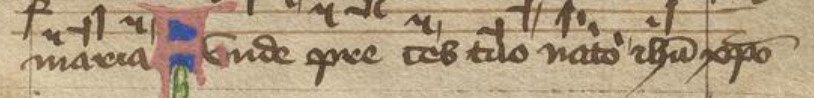 maria Funde pre ces tuo nato ihū xp̄o